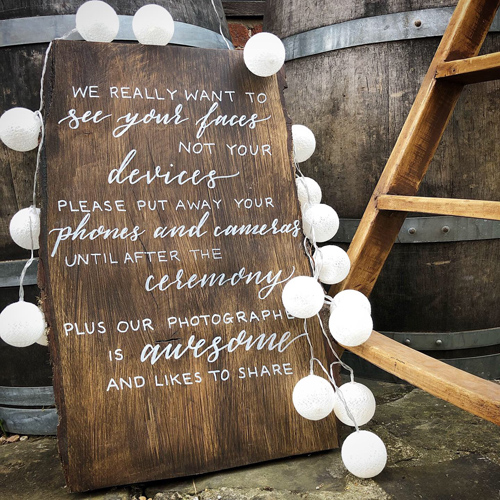 WE REALLY WANT TO
see your faces
NOT YOUR
devices
PLEASE PUT AWAY YOUR
phones and cameras
UNTIL AFTER THE
ceremony
PLUS OUR PHOTOGRAPHE
IS awesome
AND LIKES TO SHARE